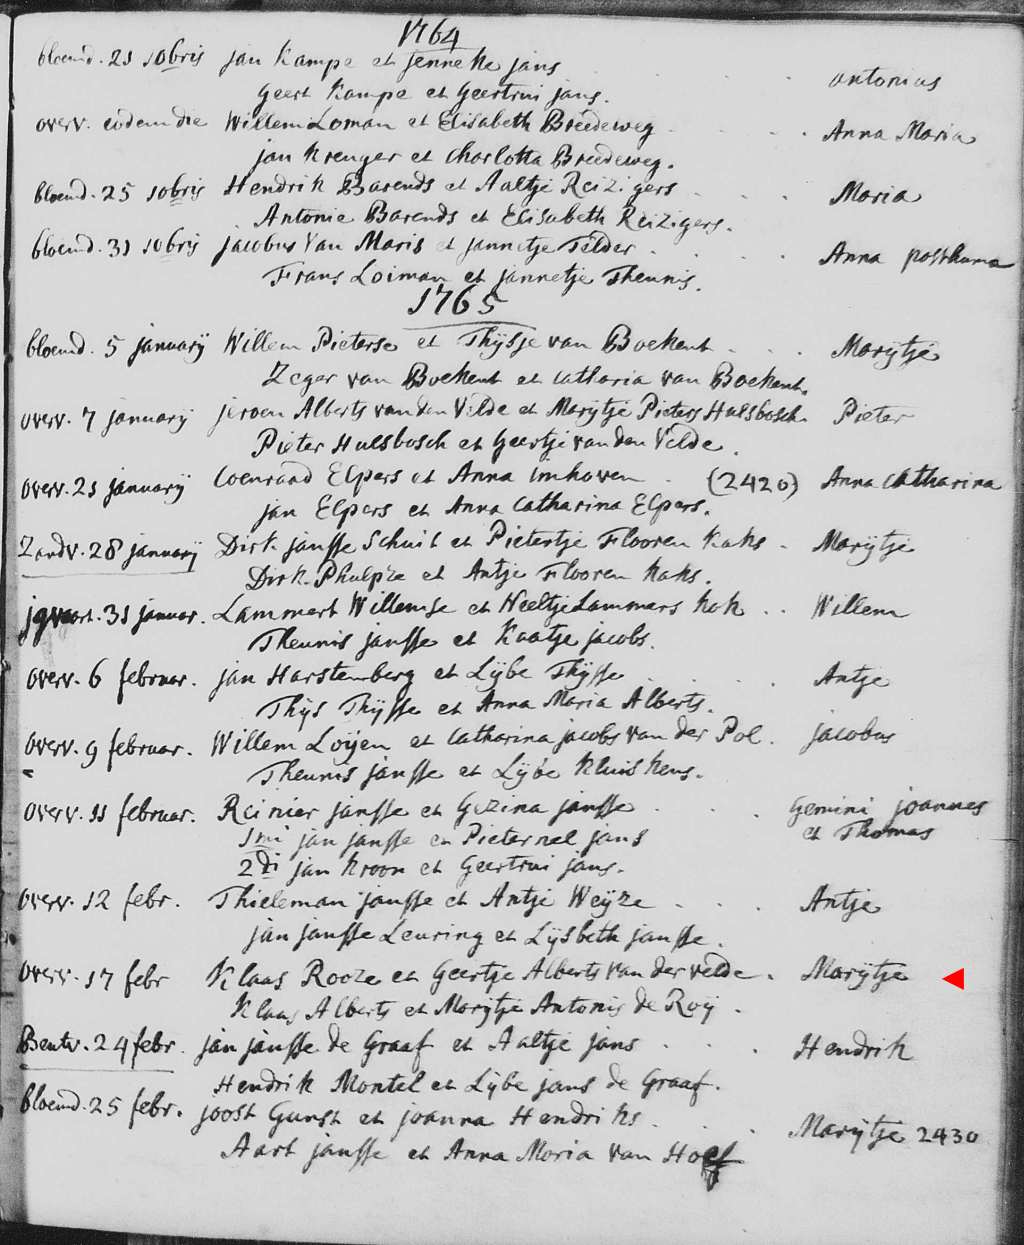 1764
bloemd. 21 10bris jan Kampe et jenneke jans . . . antonius
Geert Kampe et Geertrui jans.
overv. eodem die Willem Loman et Elisabeth Breedeweg . . . Anna Maria
jan Kreuger et Charlotta Breedeweg.
bloemd. 25 10bris Hendrik Barends et Aaltje Reizigers . . . Maria
Antonie Barends et Elisabeth Reizigers.
bloemd. 31 10bris jacobus van Maris et jannetje Telder . . . Anna posthuma
Frans Loiman et jannetje Theunis.
1765
bloemd. 5 januarij Willem Pieterse et Thijsje van Boekent . . . Marijtje
Zeger van Boekent et catharia van Boekent.
overv. 7 januarij jeroen Alberts van den Velde et Marijtje Pieters Hulsbosch. Pieter
Pieter Hulsbosch et Geertje van den Velde.
overv. 21 januarij Coenraad Elpers et Anna imhoven . (2420) Anna Catharina
jan Elpers et Anna Catharina Elpers.
Zandv. 28 januarij Dirk jansse Schuit et Pietertje Flooren Kaks . Marijtje
Dirk Phulpze et Antje Flooren Kaks.
31 januar. Lammert Willemse et Neeltje Lammers Kok . . Willem
Theunis jansse et Kaatje jacobs.
overv. 6 februar. jan Harstemberg et Lijbe Thijsse . . . Antje
Thijs Thijsse et Anna Maria Alberts.
overv. 9 februar. Willem Loijen et Catharina jacobs van der Pol. jacobus
Theunis jansse et Lijbe Kluiskens.
overv. 11 februar. Reinier jansse et Gezina jansse . . . Gemini joannes
et Thomas
1mi jan jansse et Pieternel jans
2di jan Kroon et Geertrui jans.
overv. 12 febr. Thieleman jansse et Antje Weijze . . . Antje
jan jansse Leuring et Lijsbeth jansse.
overv. 17 febr Klaas Rooze et Geertje Alberts van der velde . Marijtje
Klaas Alberts et Marijtje Antonis de Roij.
Bentv. 24 febr. jan jansse de Graaf et Aaltje jans . . . Hendrik
Hendrik Montel et Lijbe jans de Graaf.
bloemd. 25 febr. joost Gunst et joanna Hendriks . . . Marijtje 2430
Aart jansse et Anna Maria van Hoef